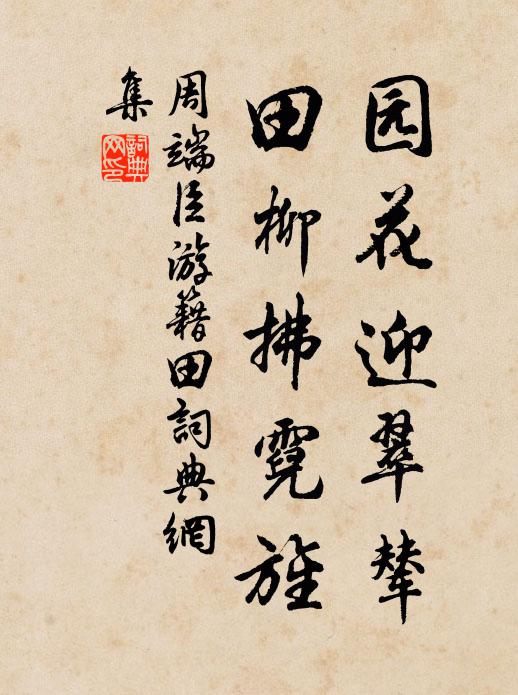 园花迎翠辇
田柳拂霓旌
周端臣游籍田詞典網
集
詞典
网印